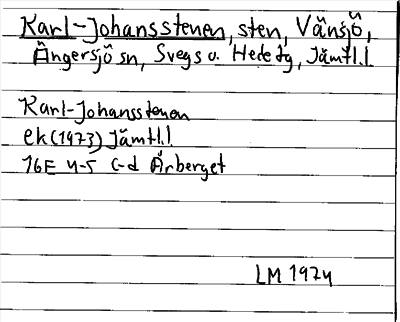 Karl-Johansstenen, sten, Vänsjö,
Ängersjö sn, Svegs o. Hede tg, Jämtl.l
Karl-Johansstenen
ek (1973) Jämtl.l
16E 4-5 c-d Årberget
LM 1974